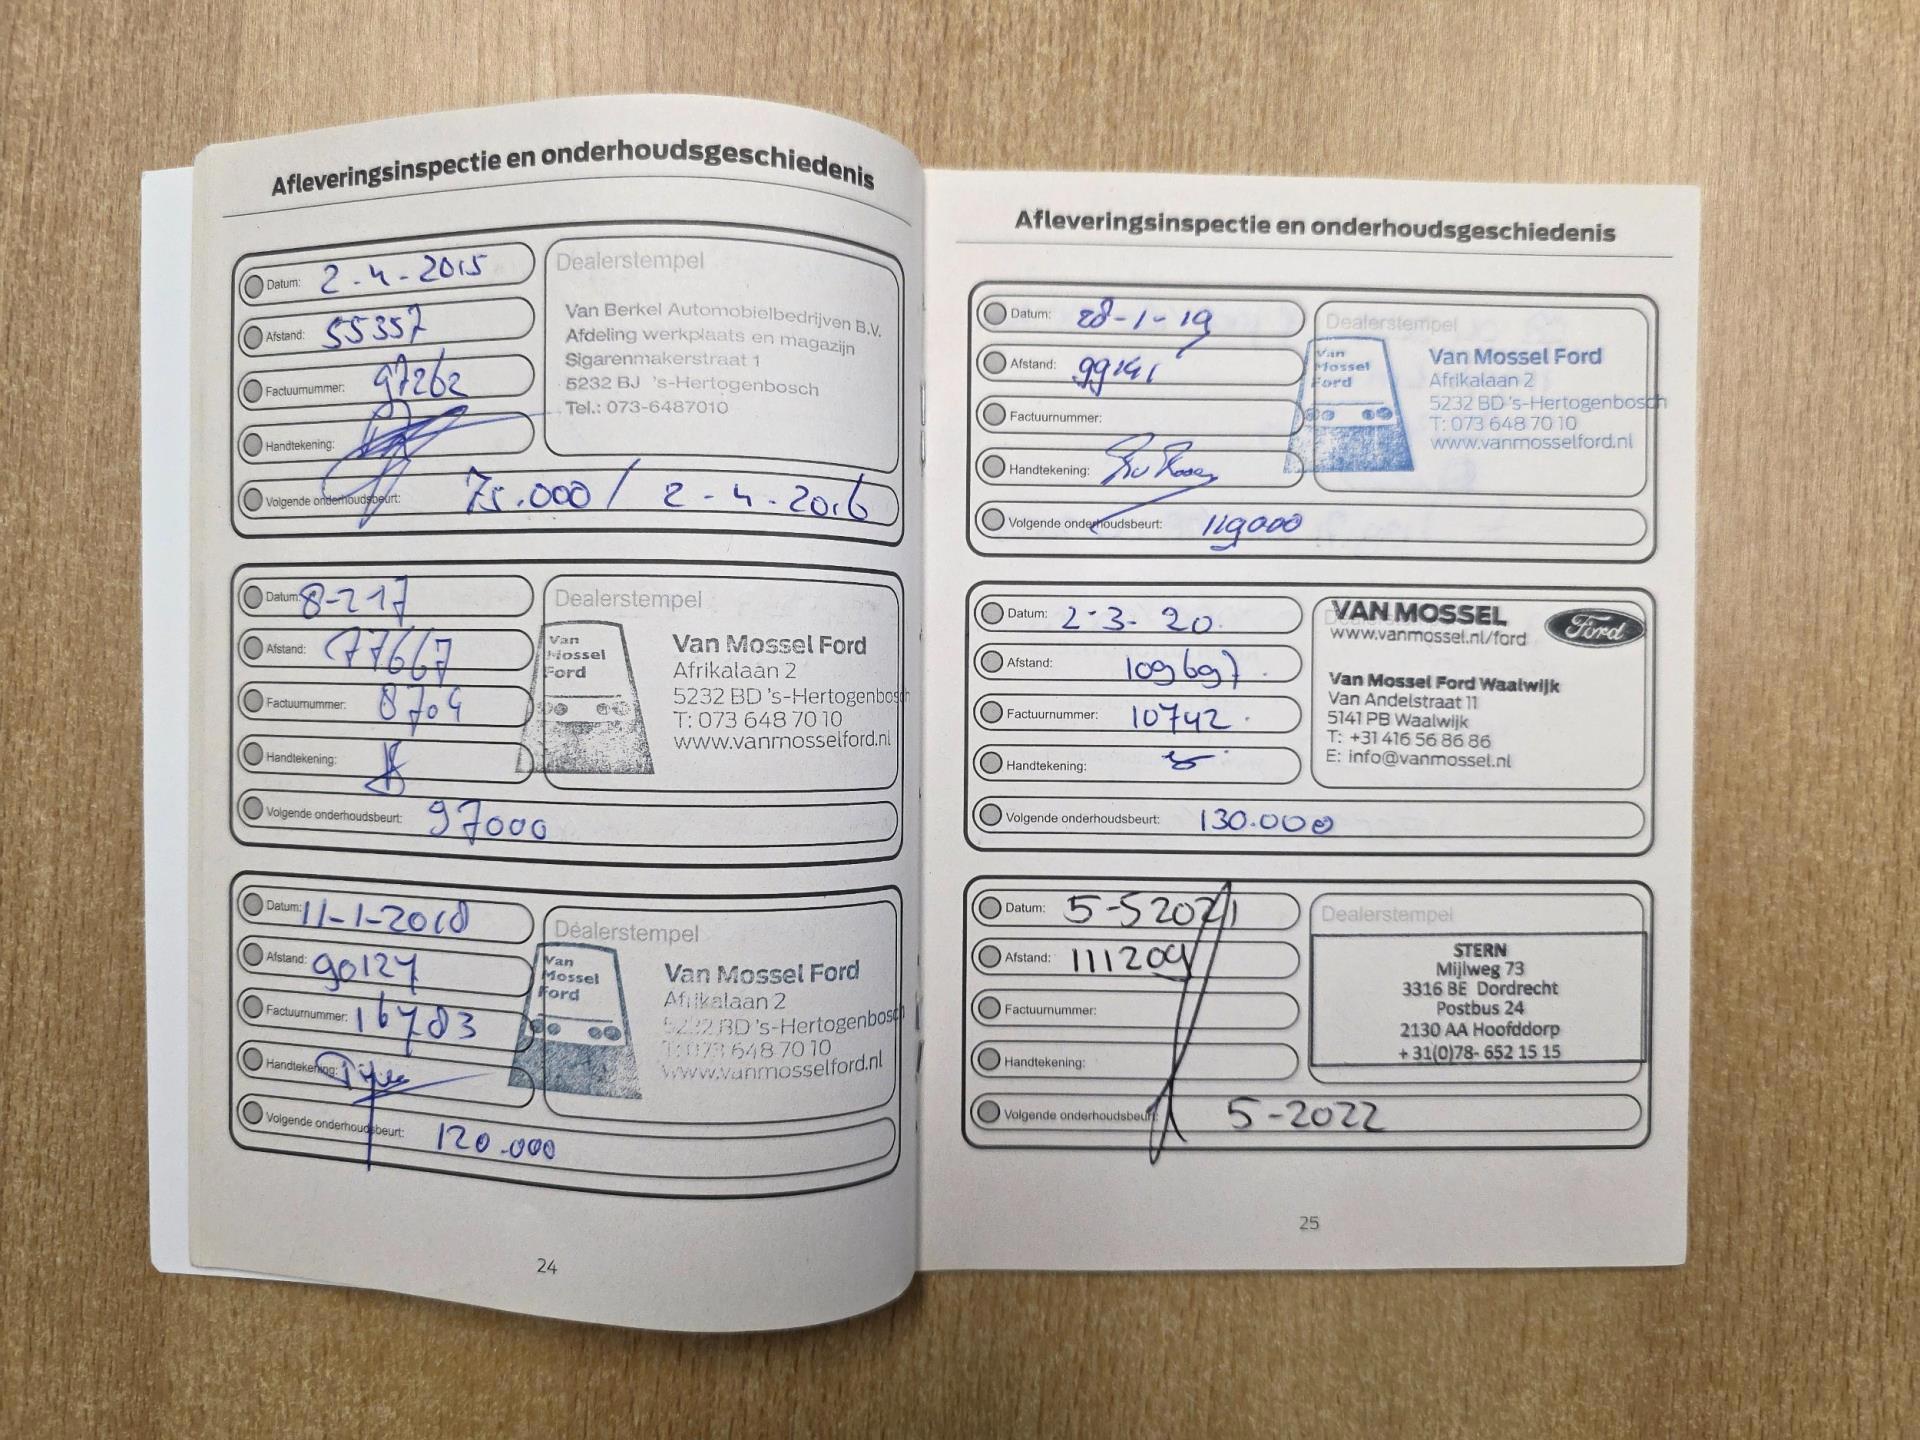 Afleveringsinspectie en onderhoudsgeschiedenis
Datum: 2-4-2015
Afstand: 55357
Factuurnummer: 97262
Handtekening:
Volgende onderhoudsbeurt: 75.000 / 2-4-2016
Dealerstempel
Van Berkel Automobielbedrijven B.V.
Afdeling werkplaats en magazijn
Sigarenmakerstraat 1
5232 BJ 's-Hertogenbosch
Tel.: 073-6487010
Datum: 8-2 17
Afstand: 77667
Factuurnummer: 8704
Handtekening:
Volgende onderhoudsbeurt: 97000
Dealerstempel
Van
Mossel
Ford
Van Mossel Ford
Afrikalaan 2
5232 BD 's-Hertogenbosch
T: 073 648 70 10
www.vanmosselford.nl
Datum: 11-1-2018
Afstand: 90127
Factuurnummer: 16783
Handtekening:
Volgende onderhoudsbeurt: 120.000
Dealerstempel
Van
Mossel
Ford
Van Mossel Ford
Afrikalaan 2
5232 BD 's-Hertogenbosch
T: 073 648 70 10
www.vanmosselford.nl
24
Afleveringsinspectie en onderhoudsgeschiedenis
Datum: 28-1-19
Afstand: 99141
Factuurnummer:
Handtekening:
Volgende onderhoudsbeurt: 119000
Dealerstempel
Van
Mossel
Ford
Van Mossel Ford
Afrikalaan 2
5232 BD 's-Hertogenbosch
T: 073 648 70 10
www.vanmosselford.nl
Datum: 2-3-20.
Afstand: 109697.
Factuurnummer: 10742.
Handtekening:
Volgende onderhoudsbeurt: 130.000
VAN MOSSEL
www.vanmossel.nl/ford
Ford
Van Mossel Ford Waalwijk
Van Andelstraat 11
5141 PB Waalwijk
T: +31 416 56 86 86
E: info@vanmossel.nl
Datum: 5-5 2021
Afstand: 111209
Factuurnummer:
Handtekening:
Volgende onderhoudsbeurt: 5-2022
Dealerstempel
STERN
Mijlweg 73
3316 BE Dordrecht
Postbus 24
2130 AA Hoofddorp
+31(0)78- 652 15 15
25